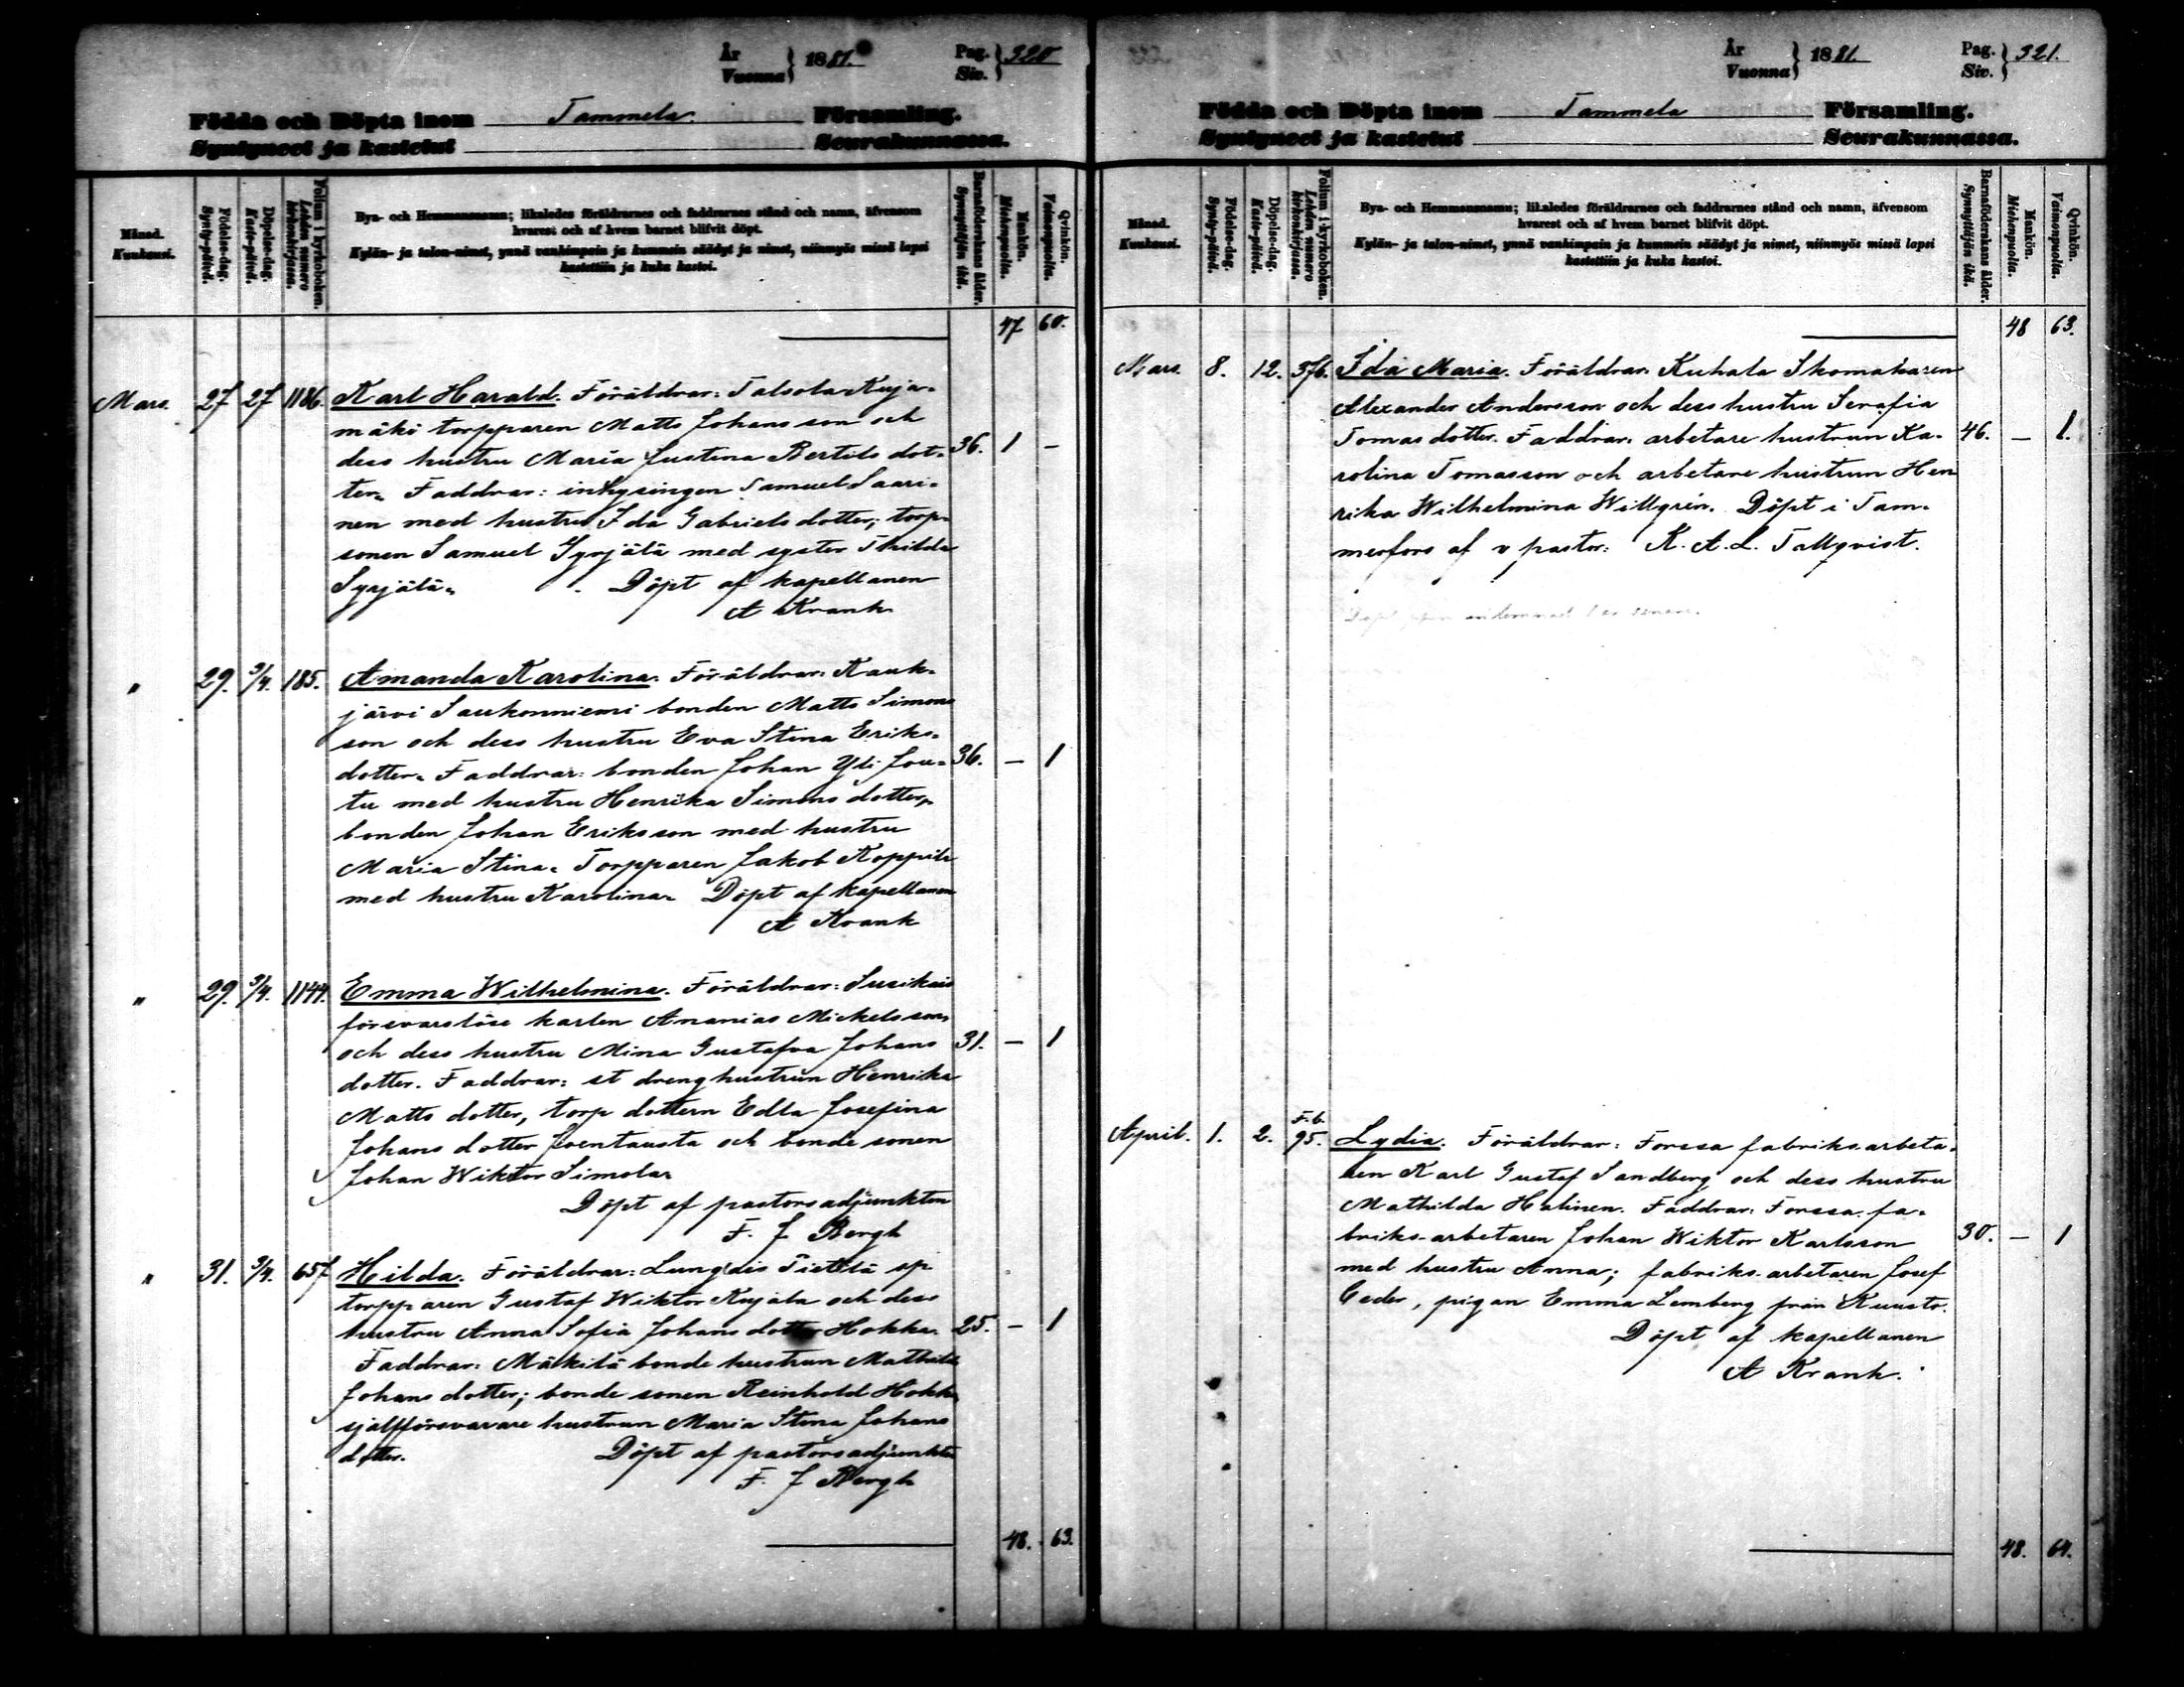 År
Vuonna } 1881.
Pag.
Siv. } 320
Födda och Döpta inom Tammela Församling.
Syntyneet ja kastetut Seurakunnassa.
Månad.
Kuukausi.
Födelse-dag.
Synty-päivä.
Döpelse-dag.
Kaste-päivä.
Folium i kyrkoboken.
Lehden numero kirkonkirjassa.
Bya- och Hemmansnamn; likaledes föräldrarnes och faddrarnes stånd och namn, äfvensom
hvarest och af hvem barnet blifvit döpt.
Kylän- ja talon-nimet, ynnä vanhimpain ja kummein säädyt ja nimet, niinmyös missä lapsi
kastettiin ja kuka kastoi.
Barnaföderskans ålder.
Synnyttäjän ikä.
Mankön.
Miehenpuolia.
Qvinkön.
Vaimonpuolia.
47 60.
Mars. 27 27 1186. Karl Harald. Föräldrar: Talsola Kuja-
mäki torpparen Matts Johansson och
dess hustru Maria Justina Bertils dot- 36. 1 -
ter. Faddrar: inhysingen Samuel Saari-
nen med hustru Ida Gabriels dotter; torp-
sonen Samuel Syrjälä med syster Thilda
Syrjälä. Döpt af kapellanen
A Krank
" 29. 3/4. 185. Amanda Karolina. Föräldrar: Kauk-
järvi Saukonniemi bonden Matts Simons
son och dess hustru Eva Stina Eriks-
dotter. Faddrar: bonden Johan Yli Jou- 36. - 1
tu med hustru Henrika Simons dotter,
bonden Johan Eriksson med hustru
Maria Stina. Torpparen Jakob Koppila
med hustru Karolina. Döpt af kapellanen
A Krank
" 29. 3/4. 1144. Emma Wilhelmina. Föräldrar: Susikais
försvarslöse karlen Ananias Mickelsson
och dess hustru Mina Gustafva Johans 31. - 1
dotter. Faddrar: st drenghustrun Henrika
Matts dotter, torp dottern Edla Josefina
Johans dotter Joentausta och bonde sonen
Johan Wiktor Simola
Döpt af pastorsadjunkten
F. J Bergh
" 31. 3/4. 657 Hilda. Föräldrar: Lungdis Tiettilä sp
torpparen Gustaf Wiktor Kujala och dess
hustru Anna Sofia Johans dotter Hokka. 25. - 1
Faddrar: Mäkilä bonde hustrun Mathilda
Johans dotter; bonde sonen Reinhold Hokka
sjelfförsvarare hustrun Maria Stina Johans
dotter. Döpt af pastorsadjunkten
F. J Bergh
48. 63.
År
Vuonna } 1881.
Pag.
Siv. } 321.
Födda och Döpta inom Tammela Församling.
Syntyneet ja kastetut Seurakunnassa.
Månad.
Kuukausi.
Födelse-dag.
Synty-päivä.
Döpelse-dag.
Kaste-päivä.
Folium i kyrkoboken.
Lehden numero kirkonkirjassa.
Bya- och Hemmansnamn; likaledes föräldrarnes och faddrarnes stånd och namn, äfvensom
hvarest och af hvem barnet blifvit döpt.
Kylän- ja talon-nimet, ynnä vanhimpain ja kummein säädyt ja nimet, niinmyös missä lapsi
kastettiin ja kuka kastoi.
Barnaföderskans ålder.
Synnyttäjän ikä.
Mankön.
Miehenpuolia.
Qvinkön.
Vaimonpuolia.
48 63.
Mars. 8. 12. 376. Ida Maria. Föräldrar: Kuhala Skomakaren
Alexander Andersson och dess hustru Serafia
Tomas dotter. Faddrar: arbetare hustrun Ka- 46. - 1.
rolina Tomasson och arbetare hustrun Hen
rika Wilhelmina Willgrén. Döpt i Tam-
merfors af v pastor: K. A. L. Tallqvist.
April. 1. 2. F.b. 95. Lydia. Föräldrar: Forssa fabriks.arbeta-
ren Karl Gustaf Sandberg och dess hustru
Mathilda Helinen. Faddrar: Forssa fa-
briks-arbetaren Johan Wiktor Karlsson 30. - 1
med hustru Anna; fabriks-arbetaren Josef
Ceder, pigan Emma Lemberg från Kuusto.
Döpt af kapellanen
A Krank.
48. 64.